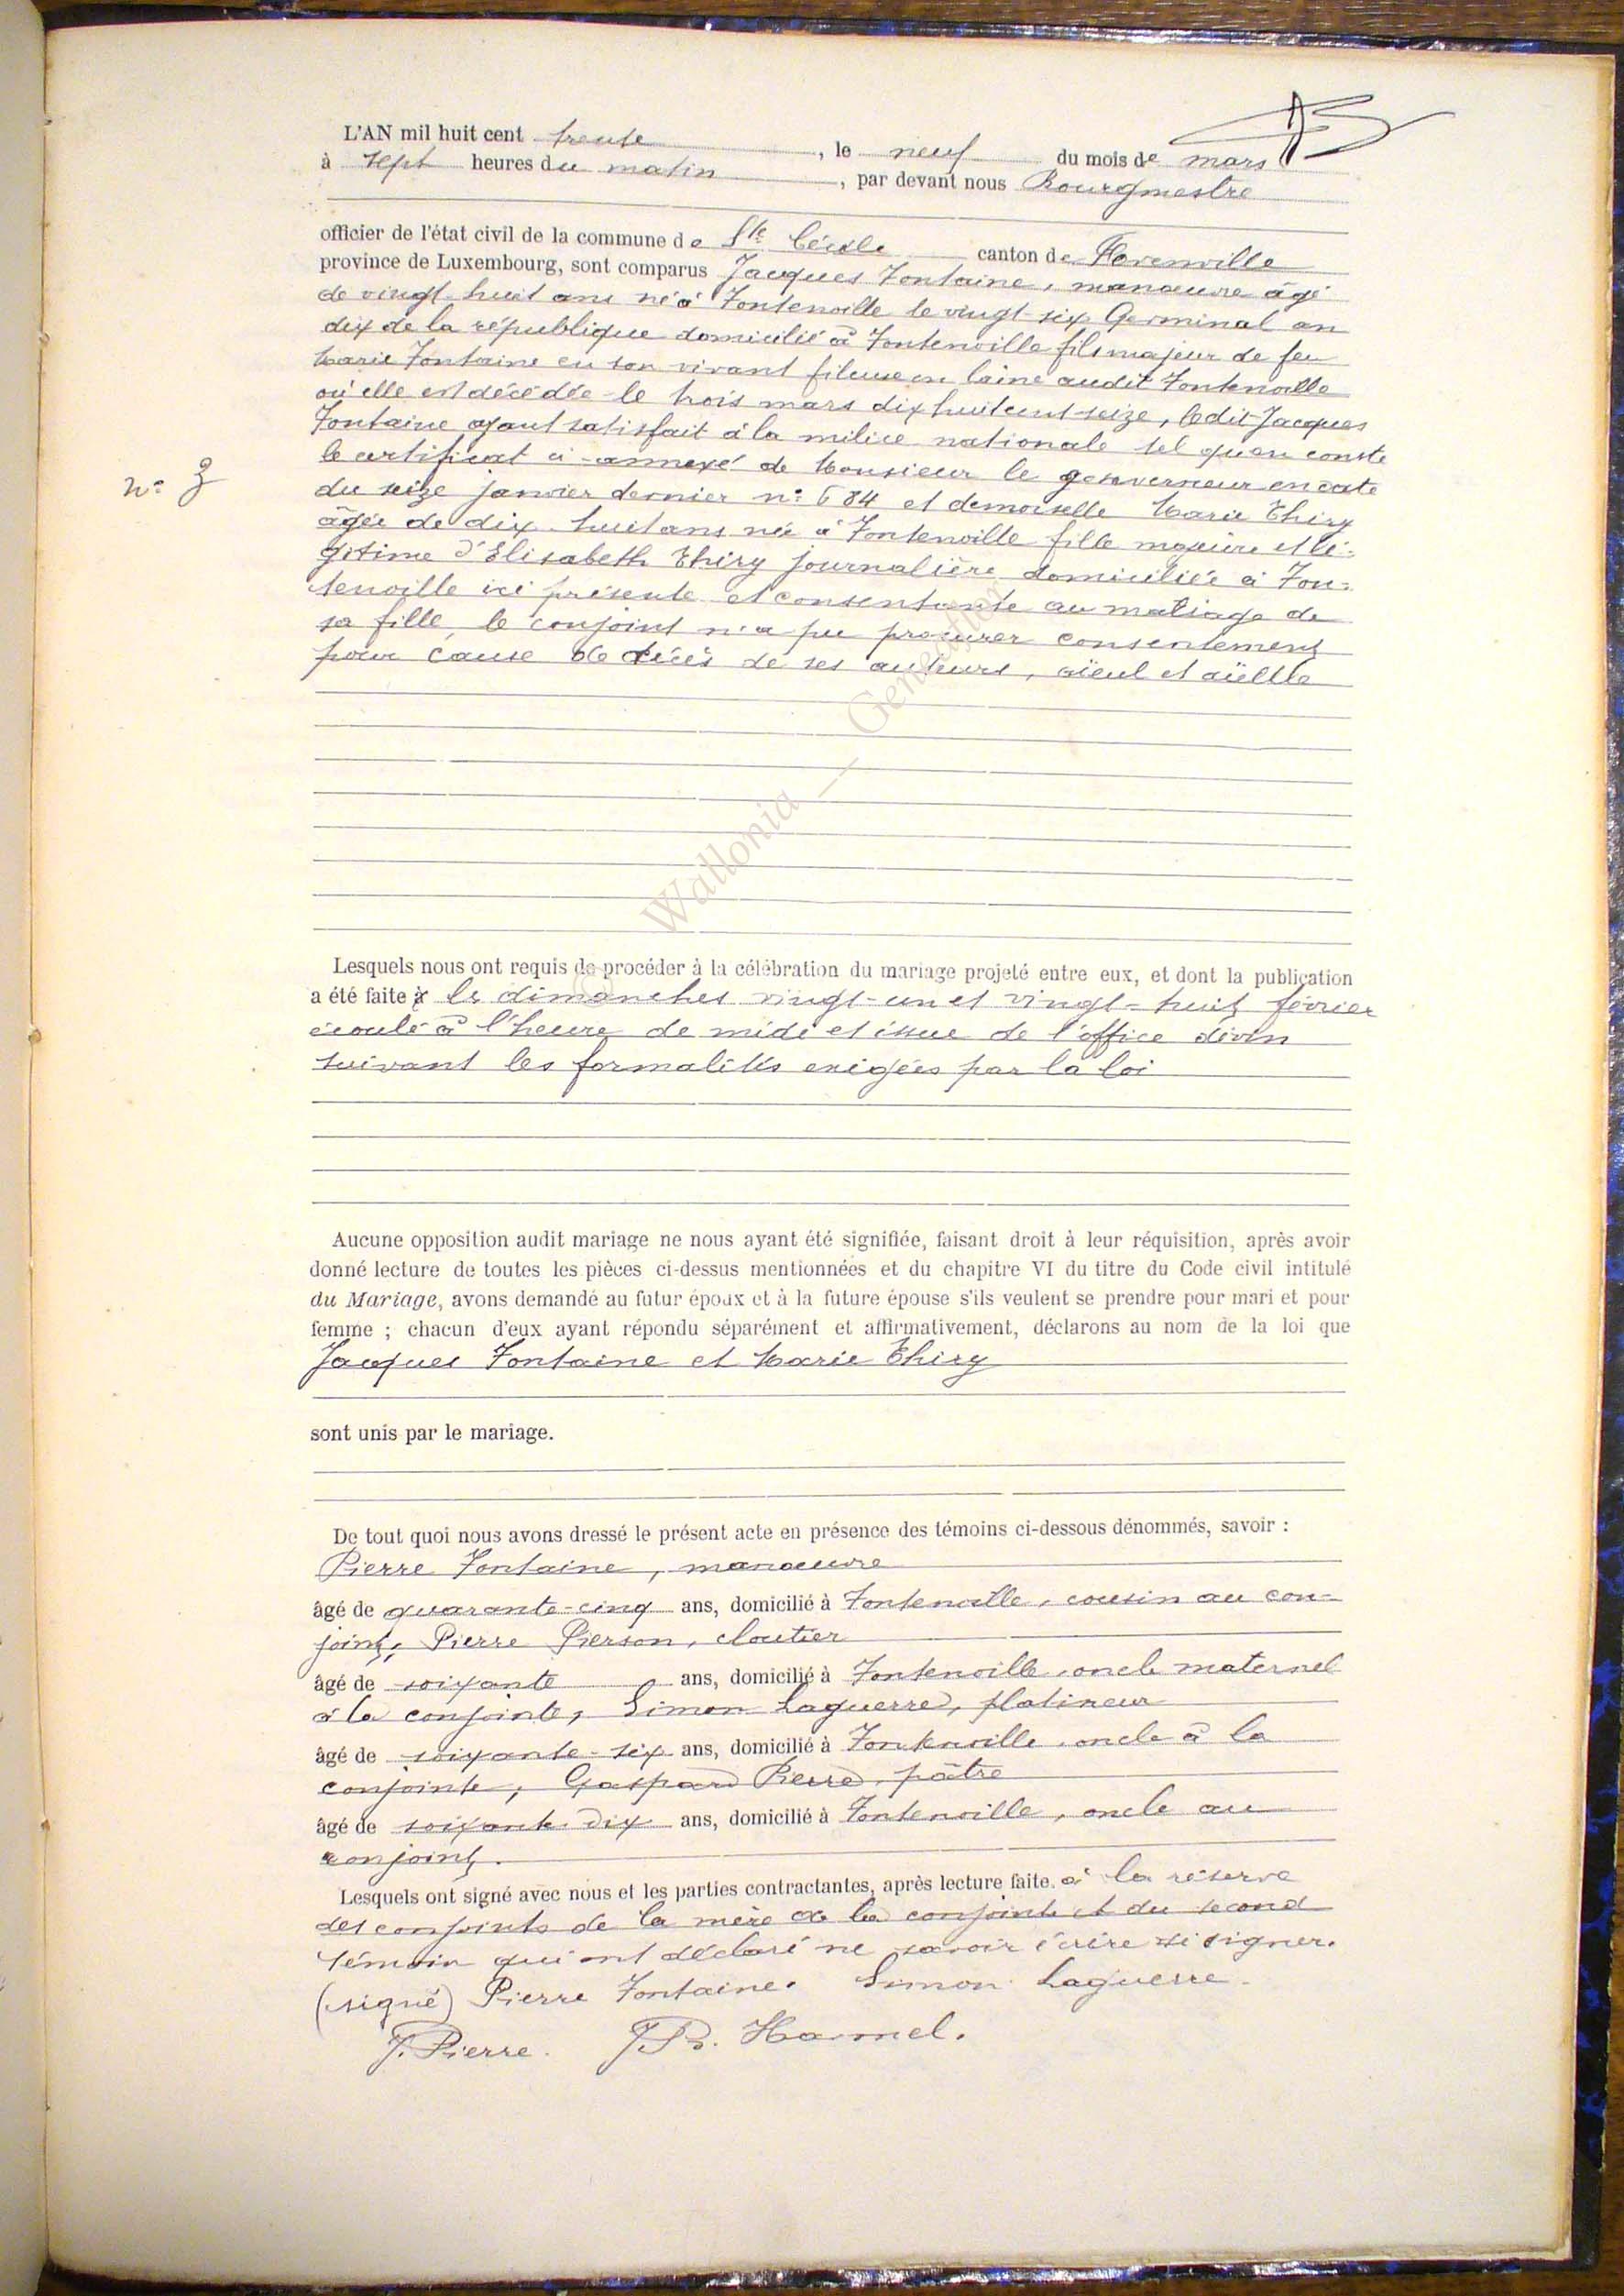 L'AN mil huit cent trente, le neuf du mois de mars
à sept heures du matin, par devant nous Bourgmestre
officier de l'état civil de la commune de Ste Cécile canton de Florenville
province de Luxembourg, sont comparus Jacques Fontaine, manœuvre âgé
de vingt-huit ans né à Fontenoille le vingt-six Germinal an
dix de la république domicilié à Fontenoille fils majeur de feu
Marie Fontaine en son vivant fileuse en laine audit Fontenoille
où elle est décédée le trois mars dix huit cent-seize, ledit Jacques
Fontaine ayant satisfait à la milice nationale tel qu'en conste
le certificat ci-annexé de Monsieur le gouverneur en date
n° 3
du seize janvier dernier n° 684 et demoiselle Marie Thiry
âgée de dix-huit ans née à Fontenoille fille majeure et lé-
gitime d'Elisabeth Thiry journalière domiciliée à Fon-
tenoille ici présente et consentante au mariage de
sa fille, le conjoint n'a pu procurer consentement
pour cause de décès de ses auteurs, aïeul et aïeulle
© Wallonia — Genealogy
Lesquels nous ont requis de procéder à la célébration du mariage projeté entre eux, et dont la publication
a été faite le dimanches vingt-un et vingt-huit février
écoulé à l'heure de midi et issue de l'office divin
suivant les formalités exigées par la loi
Aucune opposition audit mariage ne nous ayant été signifiée, faisant droit à leur réquisition, après avoir
donné lecture de toutes les pièces ci-dessus mentionnées et du chapitre VI du titre du Code civil intitulé
du Mariage, avons demandé au futur époux et à la future épouse s'ils veulent se prendre pour mari et pour
femme ; chacun d'eux ayant répondu séparément et affirmativement, déclarons au nom de la loi que
Jacques Fontaine et Marie Thiry
sont unis par le mariage.
De tout quoi nous avons dressé le présent acte en présence des témoins ci-dessous dénommés, savoir :
Pierre Fontaine, manœuvre
âgé de quarante-cinq ans, domicilié à Fontenoille, cousin au con-
joint, Pierre Pierson, cloutier
âgé de soixante ans, domicilié à Fontenoille, oncle maternel
à la conjointe, Simon Laguerre, platineur
âgé de soixante-six ans, domicilié à Fontenoille, oncle à la
conjointe, Gaspard Pierre, pâtre
âgé de soixante-dix ans, domicilié à Fontenoille, oncle au
conjoint.
Lesquels ont signé avec nous et les parties contractantes, après lecture faite à la réserve
des conjoints de la mère de la conjointe et du second
témoin qui ont déclaré ne savoir écrire ni signer.
(signé) Pierre Fontaine. Simon Laguerre.
J. Pierre. J.B. Hamel.